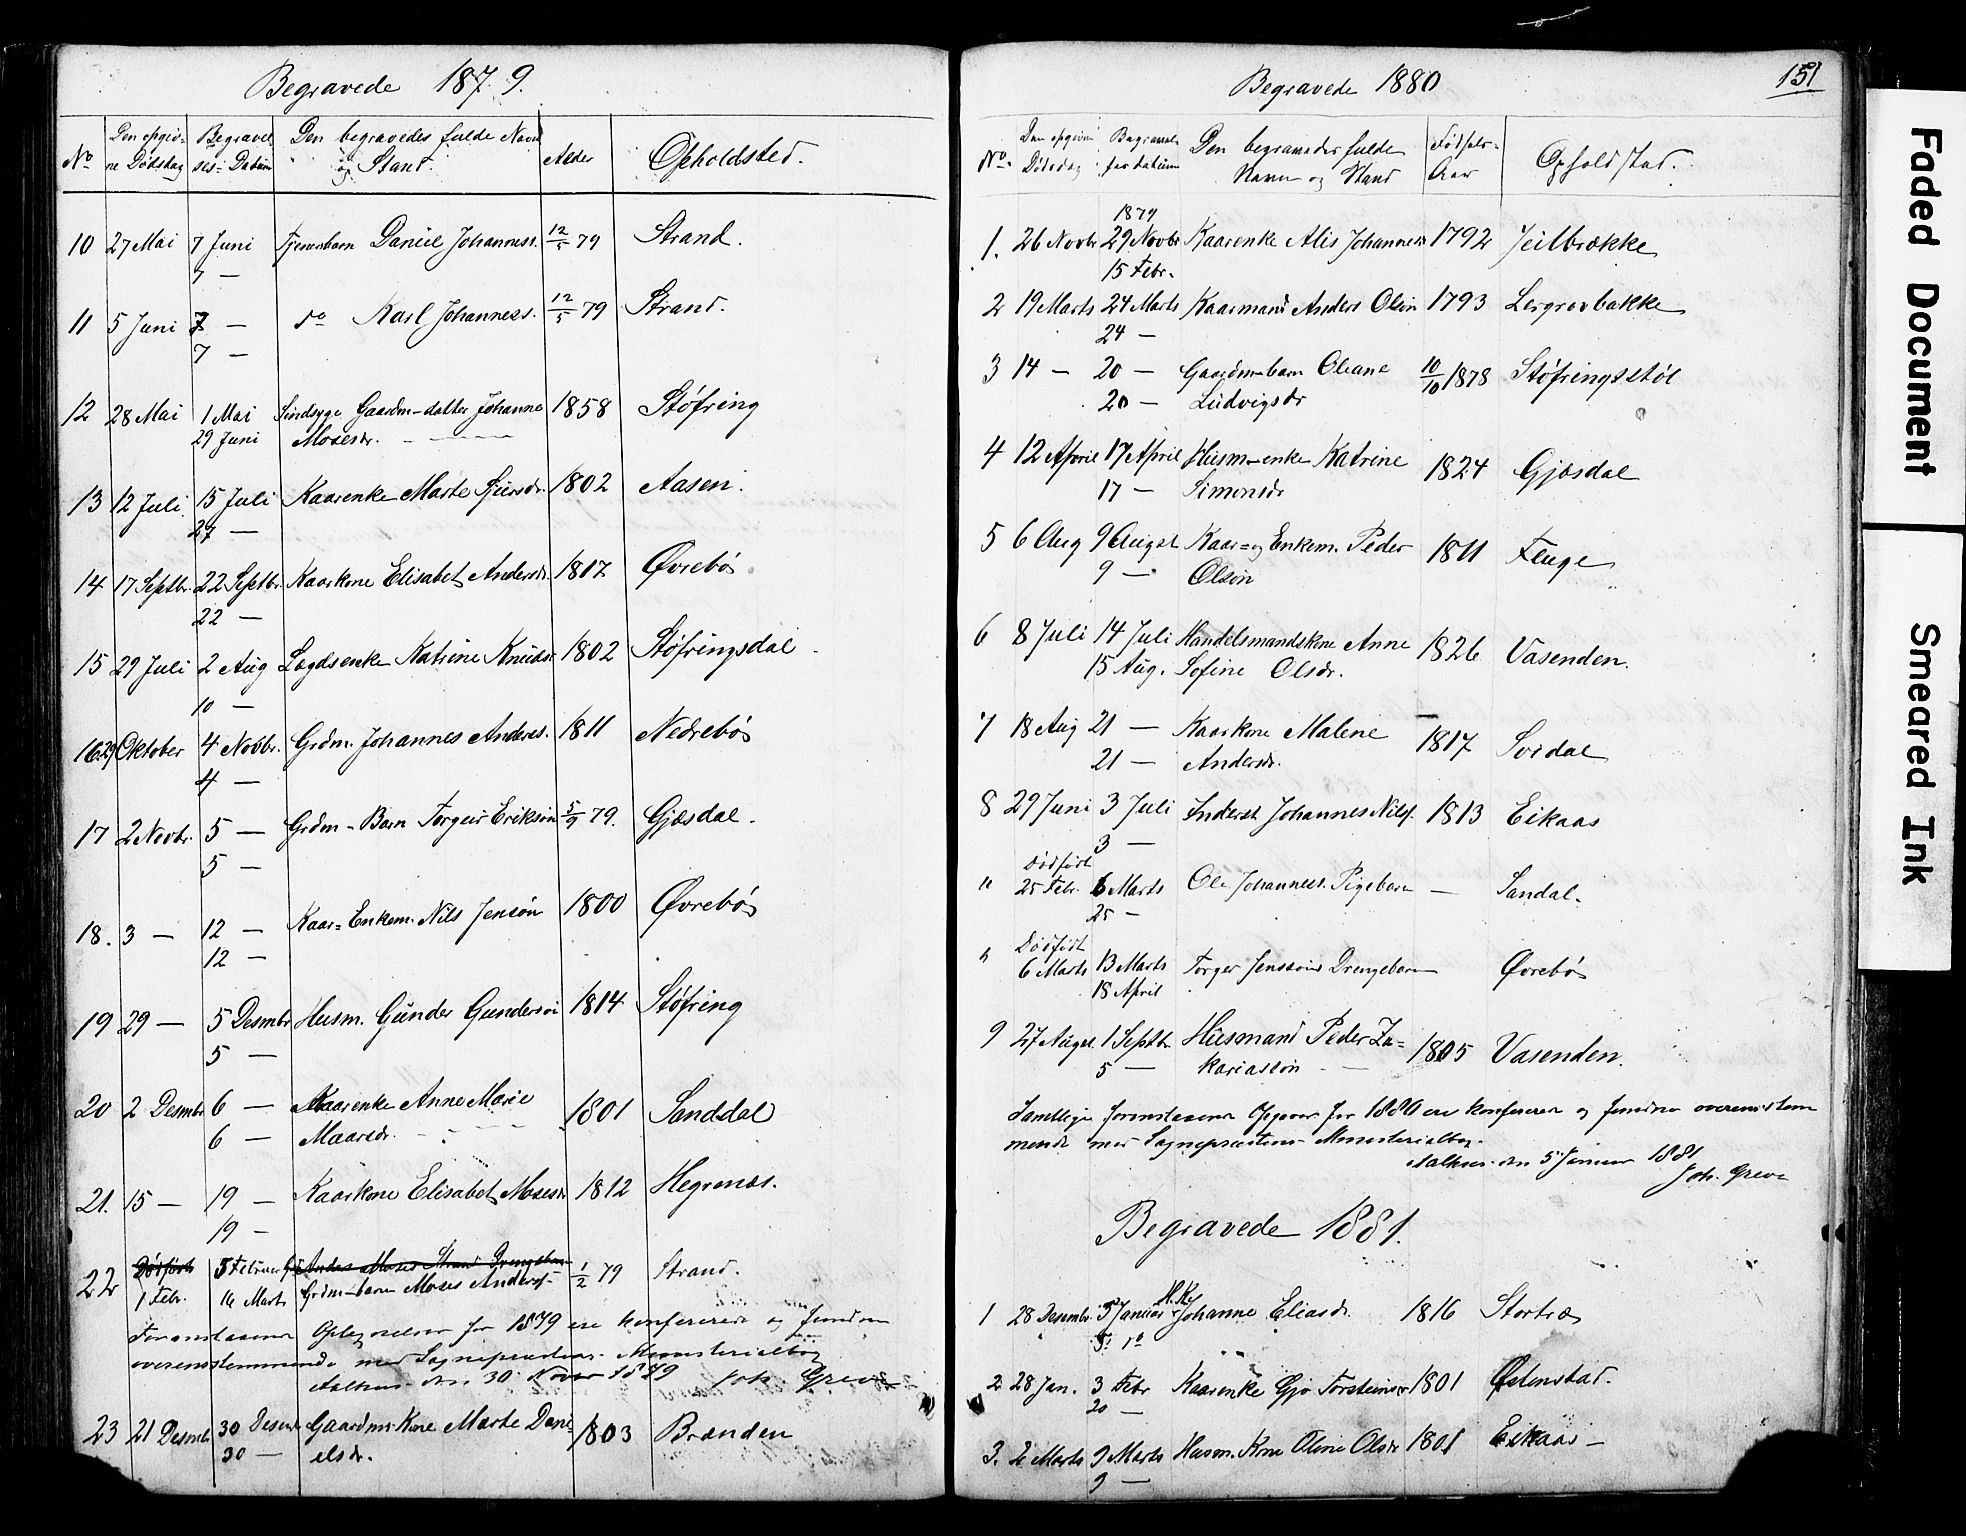 Begravede 1879.
No
Den opgiv-
ne Dødsdag
Begravel
ses-Datum
Den begravedes fulde Navn
og Stand.
Alder
Opholdsted.
10 27 Mai 7 Juni Tjenerbarn Daniel Johanness. 12/5 79 Strand.
7 —
11 5 Juni 7 — do Karl Johanness. 12/5 79 Strand.
7 —
12 28 Mai 1 Mai Sindsyge Gaardm-datter Johanne 1858 Støfring
29 Juni Mosesdr.
13 12 Juli 15 Juli Kaarenke Marte Sjursdr. 1802 Aasen.
27 —
14 17 Septbr. 22 Septbr. Kaarkone Elisabet Andersdr. 1817 Øvrebø
22 —
15 29 Juli 2 Aug Lægdsenke Katrine Knudsdr 1802 Støfringsdal
10 —
16 29 Oktober 4 Novbr. Grdm. Johannes Anders. 1811 Nedrebø
4 —
17 2 Novbr. 5 — Grdm-Barn Torgeir Erikson 5/9 79. Gjesdal.
5 —
18. 3 — 12 — Kaar=Enkem. Nils Jenson 1800 Øvrebø
12 —
19 29 — 5 Desmbr Husm. Gunder Gunderson 1814 Støfring
5 —
20 2 Desmbr 6 — Kaarenke Anne Marie 1801 Sanddal
6 — Maarsdr.
21. 15 — 19 — Kaarkone Elisabet Mosesdr 1812 Hegrenæs.
19 —
22 Dødfødt 5 Februar Anders Moses Strand Drengebarn
1 Febr. 16 Marts Grdm-barn Moses Anders. 1/2 79 Strand.
Foranstaaende Optegnelser for 1879 ere konfererede og fundne
overensstemmende med Sognepræstens Ministerialbog
den 30 Novbr 1879 Joh. Greve
23 21 Desmbr 30 Desmbr Gaardm-Kone Marte Dani= 1803 Brænden
30 — elsdr.
Begravede 1880
151
No.
Den opgivne
Dødsdag
Begravel-
sesdatum
Den begravedes fulde
Navn og Stand
Fødsels-
Aar
Opholdstad.
1879
1. 26 Novbr 29 Novbr Kaarenke Alis Johannesdr 1792 Jeilbrække
15 Febr.
2 19 Marts 24 Marts Kaarmand Anders Olson 1793 Lergrovbakke
24 —
3 14 — 20 — Gaardm-barn Oleane 10/10 1878 Støfringsstøl
20 — Ludvigsdr
4 12 April 17 April Husm-enke Katrine 1824 Gjesdal
17 — Simonsdr
5 6 Aug 9 August Kaar= og Enkem. Peder 1811 Fluge
9 — Olson
6 8 Juli 14 Juli Handelsmandskone Anne 1826 Vasenden.
15 Aug. Sofine Olsdr.
7 18 Aug 21 — Kaarkone Malene 1817 Sordal
21 — Andersdr.
8 29 Juni 3 Juli Inderst Johannes Nils. 1813 Eikaas
3 —
Dødfødt
" 25 Febr. 6 Marts Ole Johanness. Pigebarn — Sandal.
25 —
Dødfødt
" 6 Marts 13 Marts Torger Jenssons Drengebarn — Øvrebø
18 April
9 27 August 1 Septbr Husmand Peder Za= 1805 Vasenden.
5 — kariasson
Samtlige foranstaaende Opgaver for 1880 ere konfererede og fundne overensstem
mende med Sognepræstens Ministerialbog.
den 5 Januar 1881
Joh. Greve
Begravede 1881.
1 28 Desembr. 3 Januar Johanne Eliasdr 1816 Stortræ
3 do
2 28 Jan. 3 Febr Kaarenke Gjø Torsteinsdr 1801 Østenstad.
20 —
3. 2 Marts 9 Marts Husm. Kone Oline Olsdr 1801 Eikaas —
9 —
Faded Document
Smeared Ink